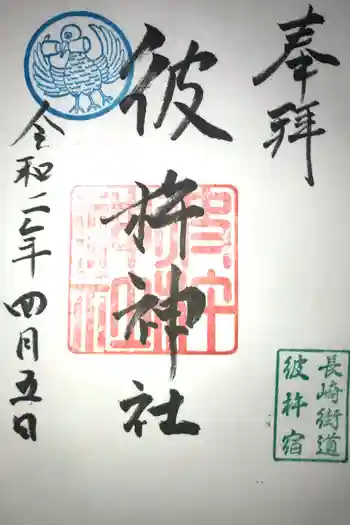 奉拝
長崎街道
彼杵宿
彼杵神社
彼杵神社
令和二年四月五日